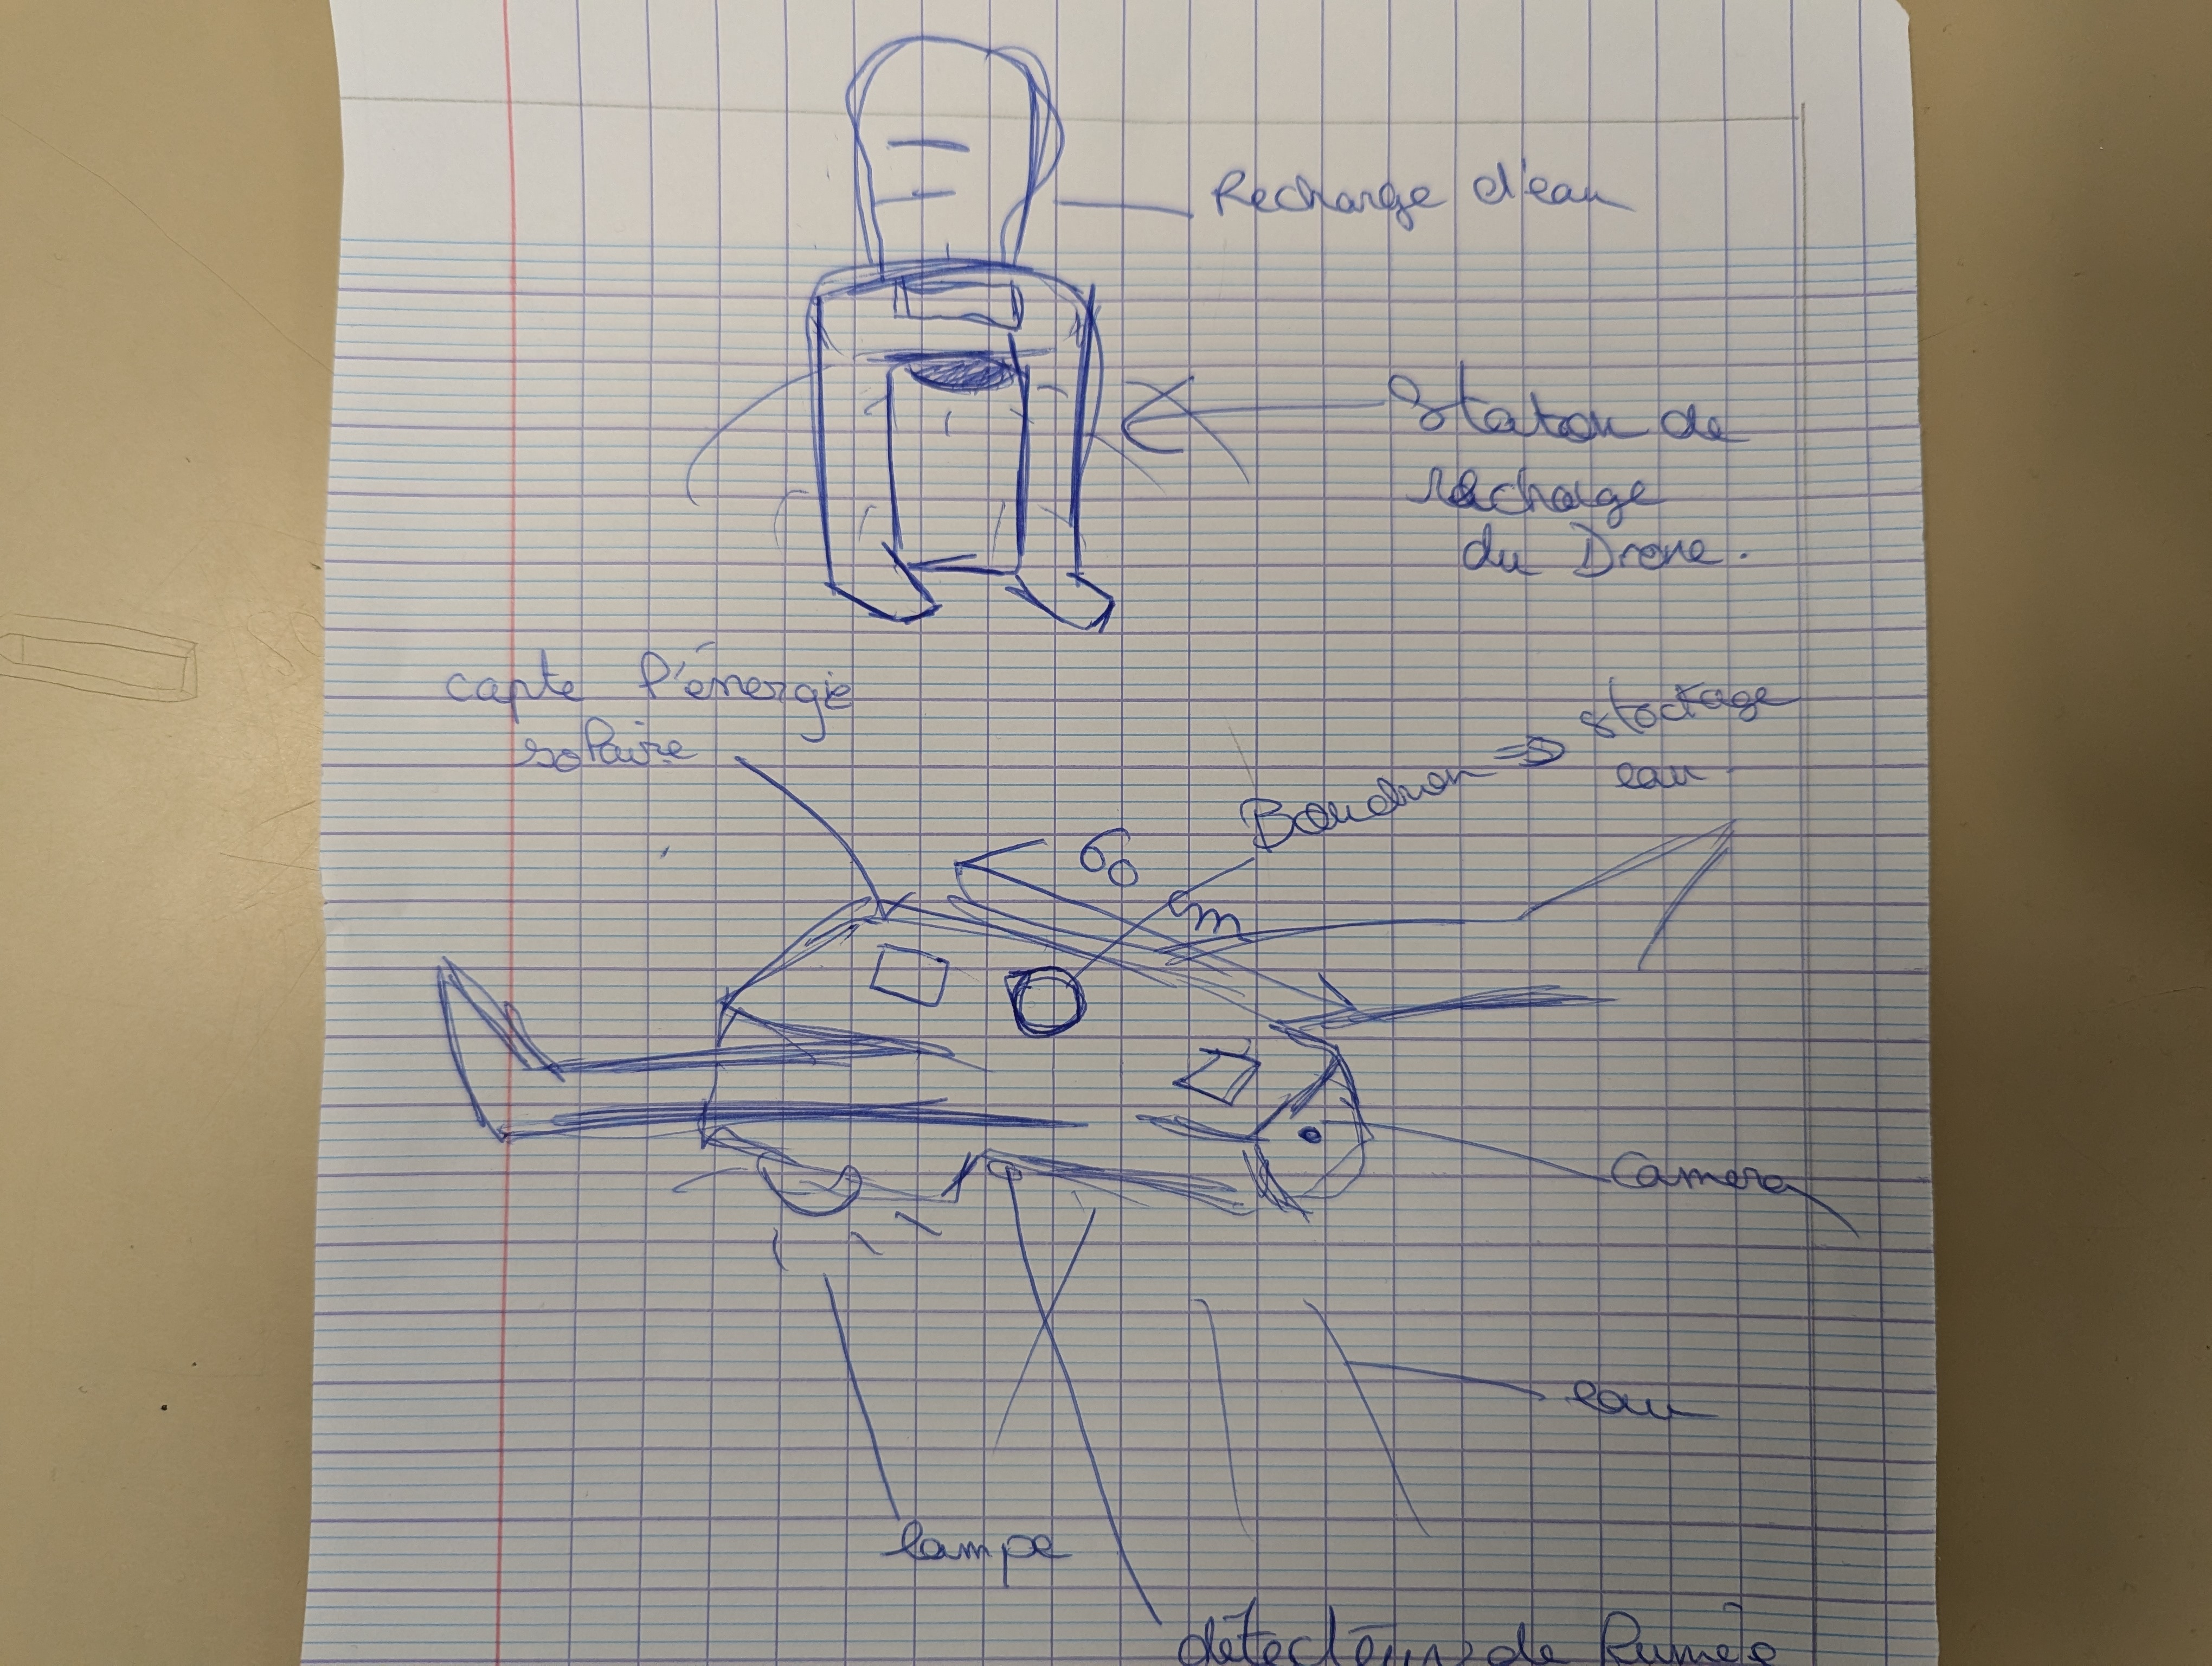 Recharge d'eau
Station de
recharge
du Drone.
capte l'énergie
solaire
Bouchon ⇒ stockage
eau.
60
cm
Camera
eau
lampe
détecteur de fumée